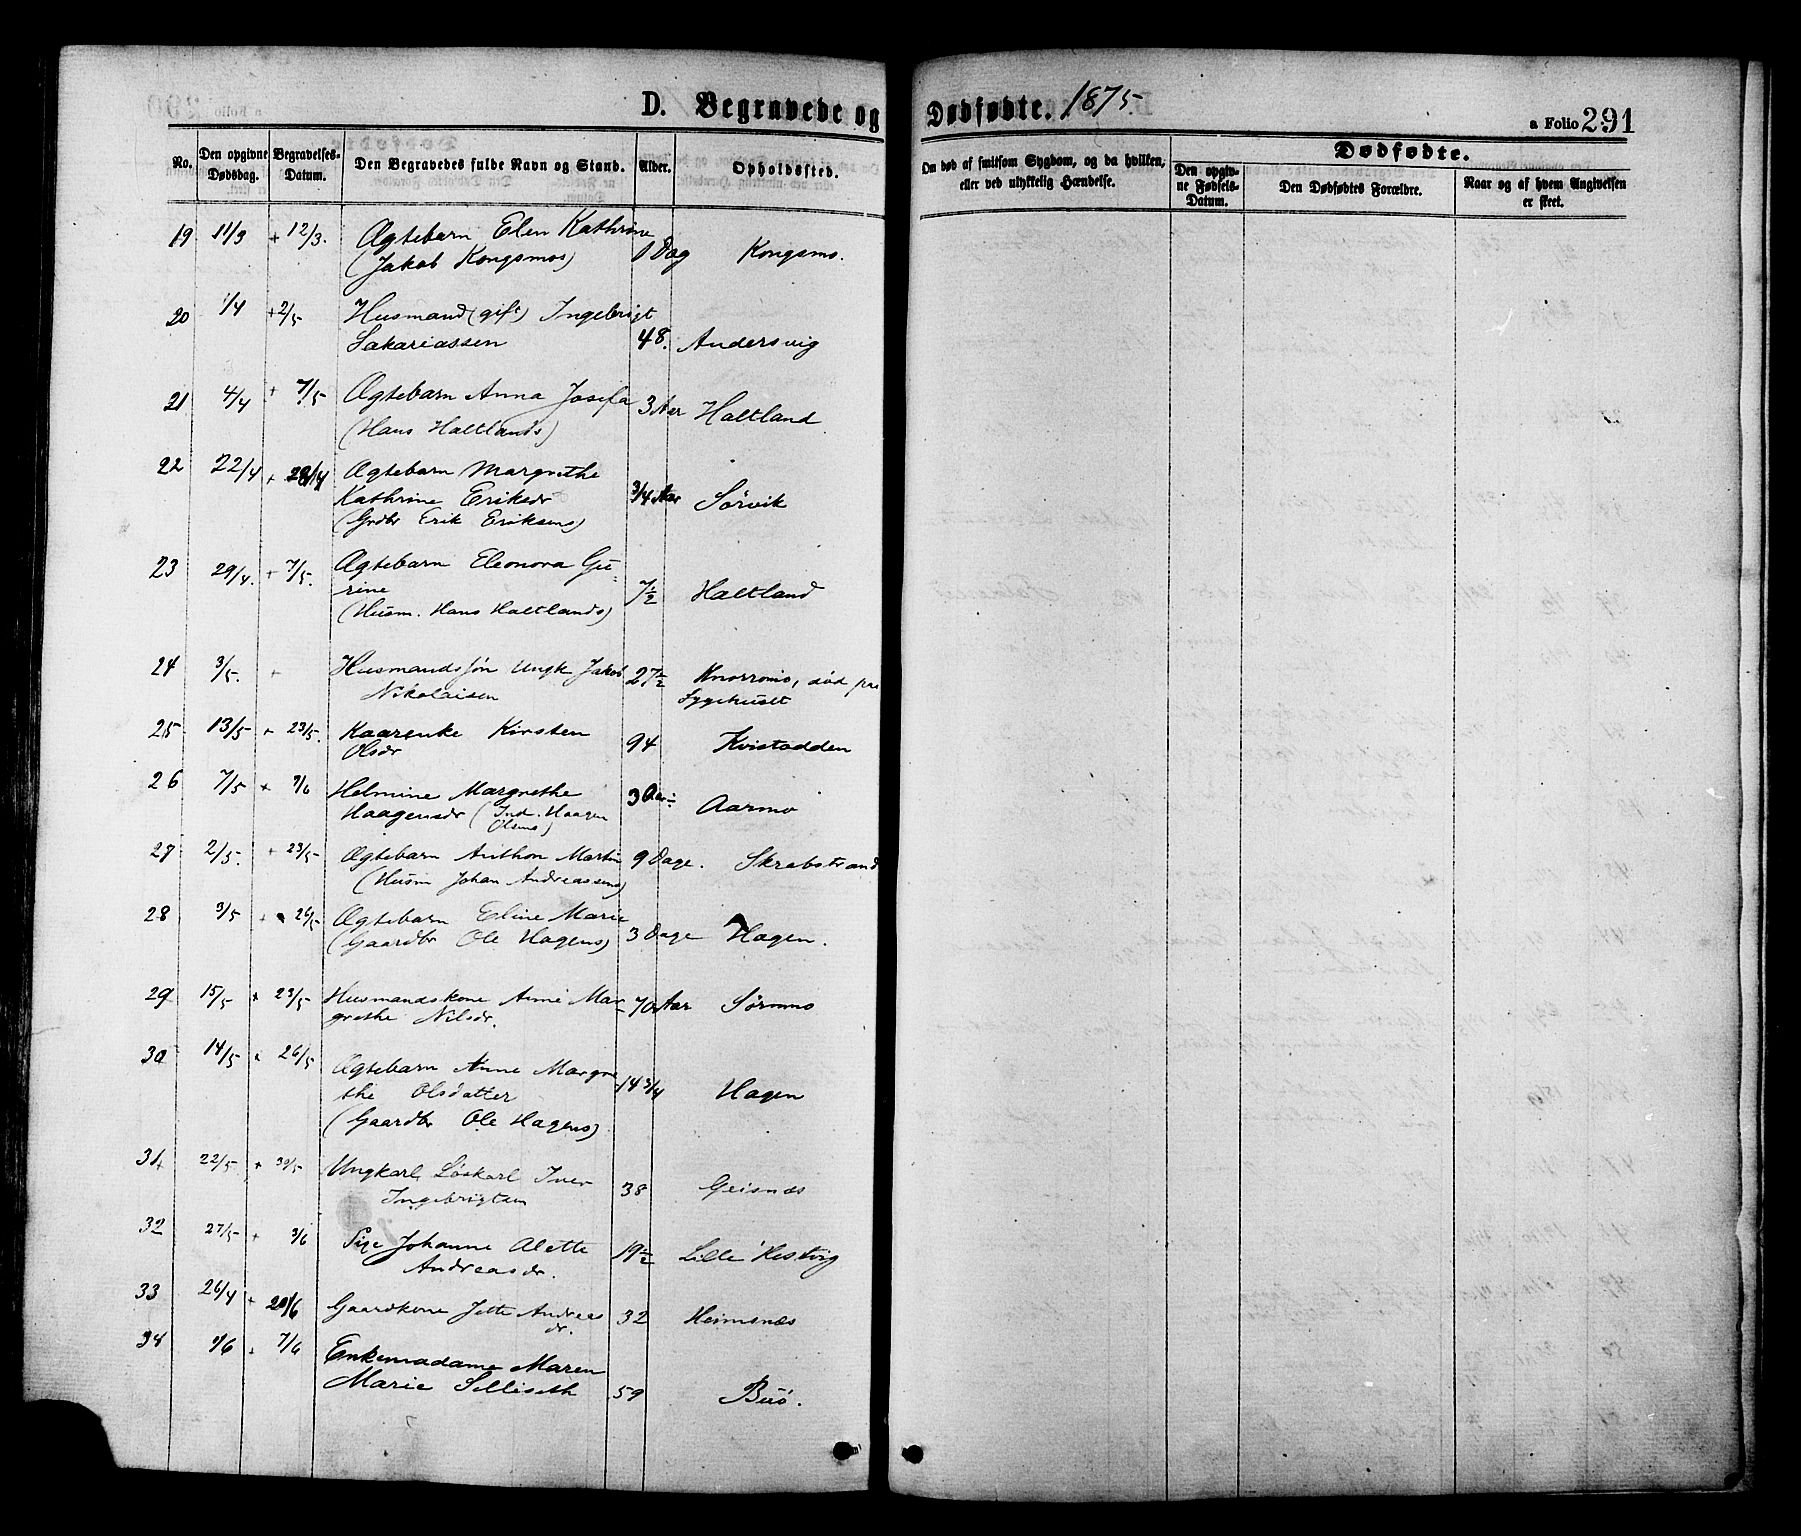 D. Begravede og Dødfødte. 1875.
a Folio 291
No. Den opgivne Dødsdag. Begravelses-Datum. Den Begravedes fulde Navn og Stand. Alder. Opholdssted.
Om død af smitsom Sygdom, og da hvilken, eller ved ulykkelig Hændelse.
Dødfødte.
Den opgivne Fødsels-Datum. Den Dødfødtes Forældre. Naar og af hvem Angivelsen er skeet.
19 11/3 + 12/3. Ægtebarn Elen Kathrine
(Jakob Kongsmos) 1 Dag Kongsmo.
20 1/4 + 2/5 Husmand (gift) Ingebrigt
Sakariassen 48. Andersvig
21 4/4 + 7/5 Ægtebarn Anna Josefa
(Hans Haltlands) 3 Aar Haltland
22 22/4 + 28/4 Ægtebarn Margrethe
Kathrine Eriksdr 3/4 Aar Sørvik
(Grdbr Erik Eriksens)
23 29/4. + 7/5. Ægtebarn Eleonora Gu-
rine 7 1/2 Haltland
(Husm. Hans Haltlands)
24 3/5. - Husmandssøn Ungk Jakob 27 1/2 Knorromo, død paa
Nikolaisen Sygehuset
25 13/5 + 23/5. Kaarenke Kirsten
Olsdr 94 Kvistadden
26 7/5 + 7/6 Helmine Margrethe
Haagensdr (Ind. Haagen 3 Aar Aarmo
Olsens)
27 2/5. + 23/5 Ægtebarn Anthon Martin 9 Dage. Skrabstrand
(Husm Johan Andreassens)
28 3/5 + 26/5 Ægtebarn Eline Marie
(Gaardbr Ole Hagens) 3 Dage Hagen.
29 15/5 + 23/5 Husmandskone Anne Mar-
grethe Nilsdr. 70 Aar Sørmo
30 14/5 + 26/5 Ægtebarn Anne Margre
the Olsdatter 14 3/4 Hagen
(Gaardbr Ole Hagens)
31 22/5. + 30/5 Ungkarl Løskarl Iver
Ingebrigtsen 38 Geisnæs
32 27/5 + 3/6 Pige Johanne Alette
Andreasdr. 19 1/2 Lille Kestvig
33 26/4 + 20/6 Gaardkone Jette Andreas
dr. 32 Heimsnæs
34 1/6 + 7/6 Enkemadame Maren
Marie Selliseth 59 Buö.